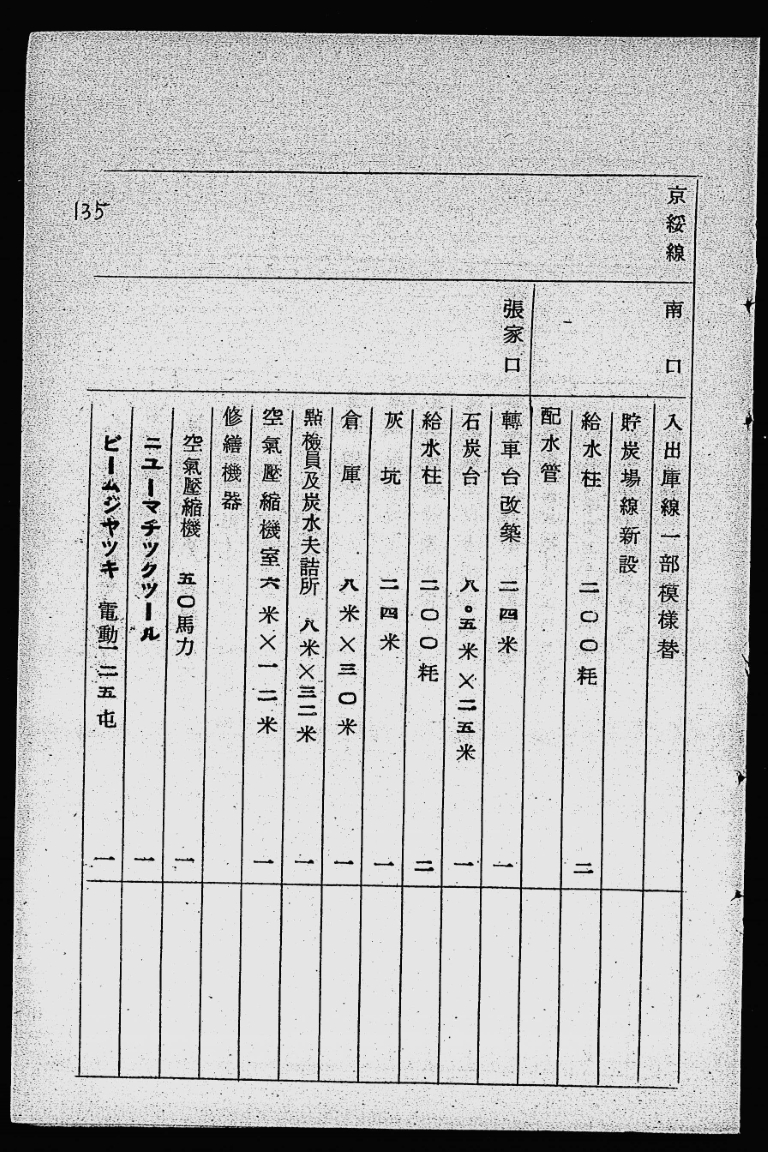 京綏線
南口
入出庫線一部模樣替
貯炭場線新設
給水柱 二〇〇粍 二
配水管
張家口
轉車台改築 二四米 一
石炭台 八。五米×二五米 一
給水柱 二〇〇粍 二
灰坑 二四米 一
倉庫 八米×三〇米 一
點檢員及炭水夫詰所 八米×三二米 一
空氣壓縮機室 六米×一二米 一
修繕機器
空氣壓縮機 五〇馬力 一
ニユーマチツクツール 一
ビームジヤツキ 電動一二五屯 一
135